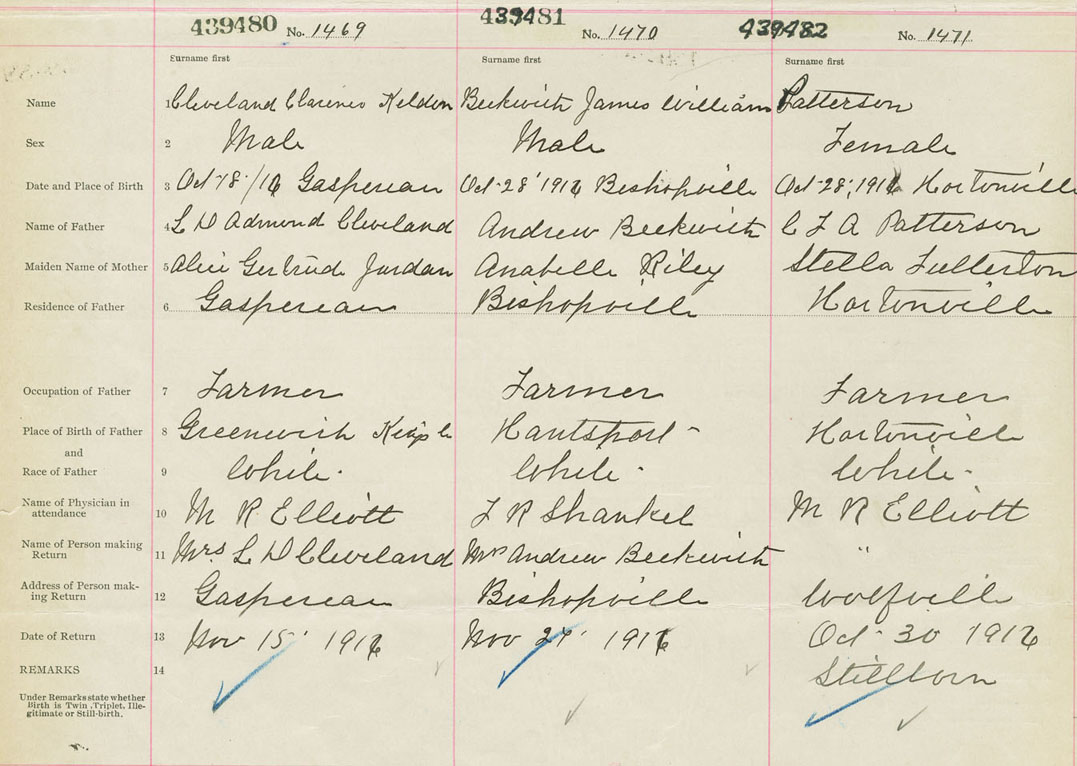 439480 No. 1469 439481 No. 1470 439482 No. 1471
Surname first Surname first Surname first
Name 1 Cleveland Clarence Keldon Beckwith James William Patterson
Sex 2 Male Male Female
Date and Place of Birth 3 Oct 18/16 Gaspereau Oct 28 1916 Bishopville Oct 28, 1916 Hortonville
Name of Father 4 L D Admond Cleveland Andrew Beckwith C F A Patterson
Maiden Name of Mother 5 Alice Gertrude Jordan Anabelle Riley Stella Fullerton
Residence of Father 6 Gaspereau Bishopville Hortonville
Occupation of Father 7 Farmer Farmer Farmer
Place of Birth of Father 8 Greenwich Kings Co Hantsport Hortonville
and
Race of Father 9 White. White. White.
Name of Physician in
attendance 10 M R Elliott F R Shankel M R Elliott
Name of Person making
Return 11 Mrs. L D Cleveland Mrs Andrew Beckwith "
Address of Person mak-
ing Return 12 Gaspereau Bishopville Wolfville
Date of Return 13 Nov 15 1916 Nov 1916 Oct 30 1916
REMARKS 14 Stillborn
Under Remarks state whether
Birth is Twin, Triplet, Ille-
gitimate or Still-birth.